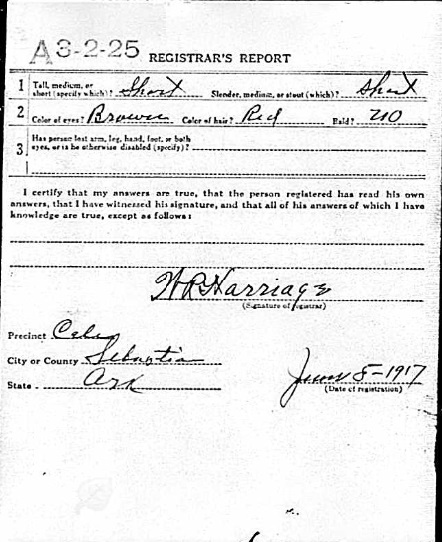 A3-2-25 REGISTRAR'S REPORT
1 Tall, medium, or short (specify which)? Short Slender, medium, or stout (which)? Short
2 Color of eyes? Brown Color of hair? Red Bald? no
3 Has person lost arm, leg, hand, foot, or both
eyes, or is he otherwise disabled (specify)?
I certify that my answers are true, that the person registered has read his own
answers, that I have witnessed his signature, and that all of his answers of which I have
knowledge are true, except as follows:
W R Harriage
(Signature of registrar)
Precinct
City or County Sebastian
State Ark
June 5-1917
(Date of registration)